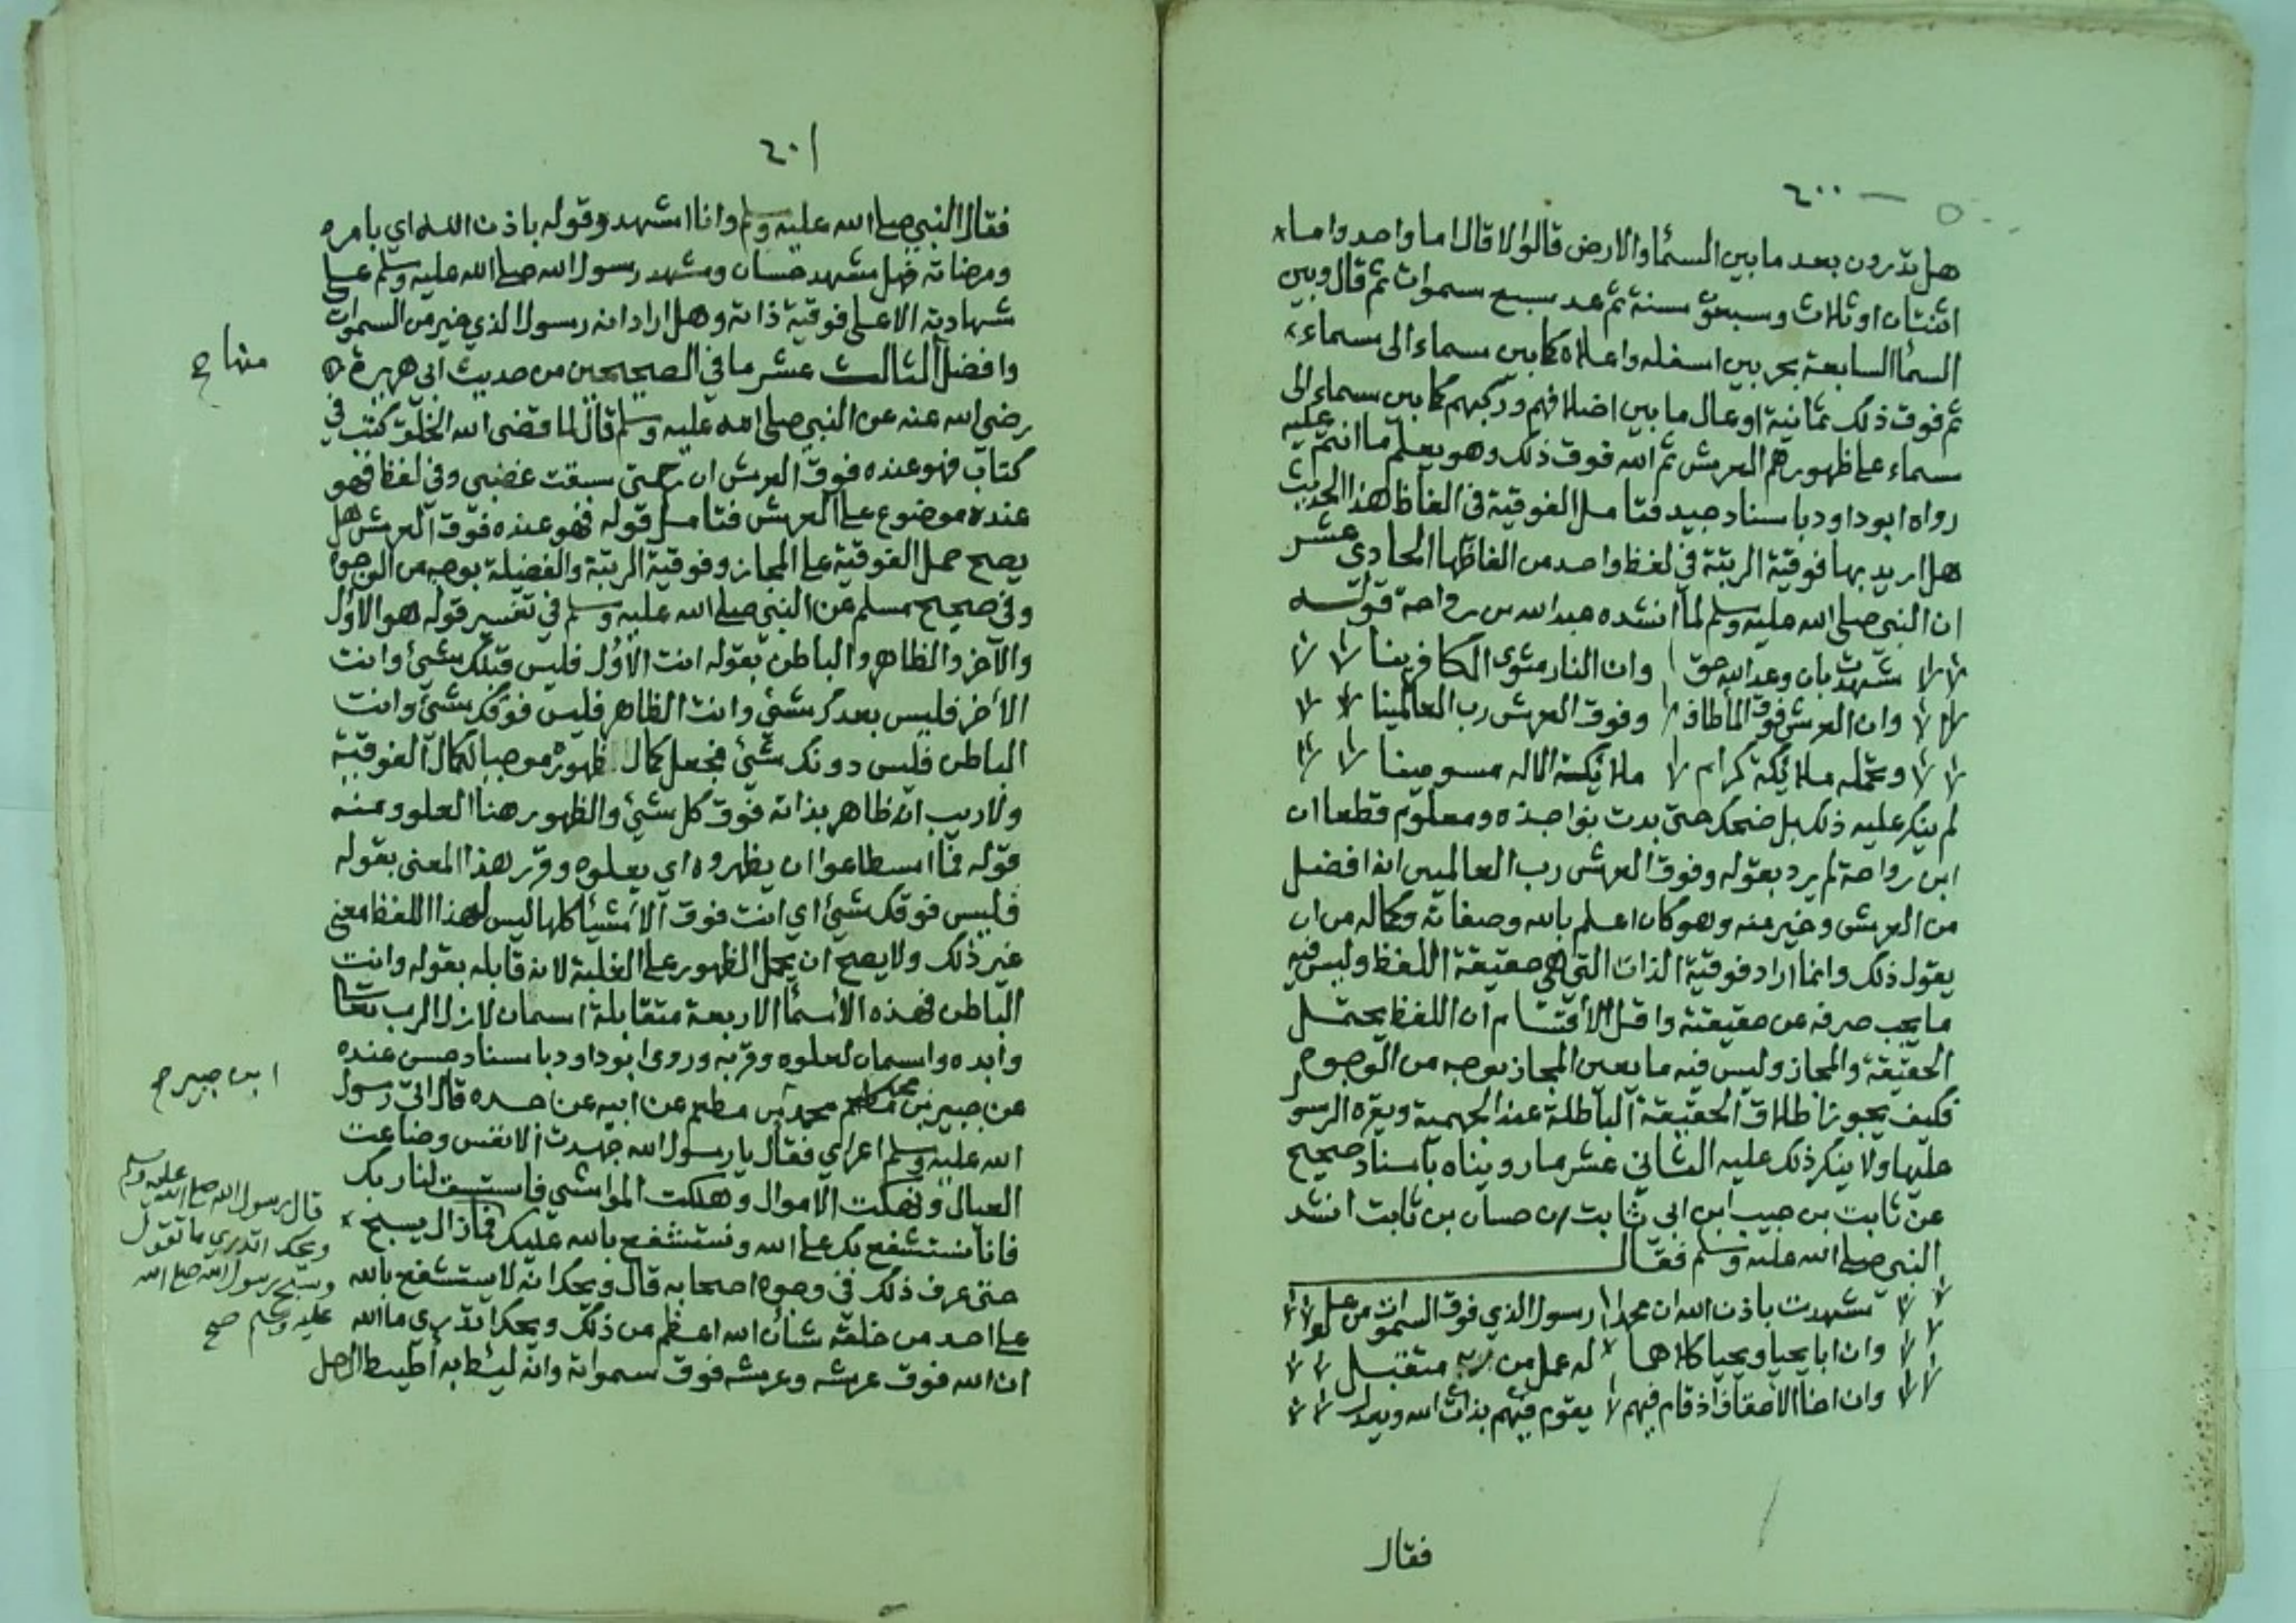 ٤٠٠
هل تدرون بعد ما بين السمآ والارض قالوا لا قال اما واحد واما
اثنتان او ثلاث وسبعون سنة ثم عد سبع سموات ثم قال وبين
السمآ السابعة بحر بين اسفله واعلاه كما بين سماء الى سماء
ثم فوق ذلك ثمانية اوعال ما بين اضلافهم وركبهم كما بين سماء الى
سماء على ظهورهم العرش ثم الله فوق ذلك وهو يعلم ما انتم عليه
رواه ابو داود باسناد جيد فتامل الفوقية في الفاظ هذا الحديث
هل اريد بها فوقية الرتبة في لفظ واحد من الفاظها الحادي عشر
ان النبي صلى الله عليه وسلم لما انشده عبد الله بن رواحة قوله
شهدت بان وعد الله حق وان النار مثوى الكافرينا
وان العرش فوق الما طاف وفوق العرش رب العالمينا
وتحمله ملائكة كرام ملائكة الاله مسومينا
لم ينكر عليه ذلك بل ضحك حتى بدت نواجذه ومعلوم قطعا ان
ابن رواحة لم يرد بقوله وفوق العرش رب العالمين انه افضل
من العرش وخير منه وهو كان اعلم بالله وصفاته وكماله من ان
يقول ذلك وانما اراد فوقية الذات التي هي حقيقة اللفظ وليس فيه
ما يجب صرفه عن حقيقته واقل الاقتسام ان اللفظ يحتمل
الحقيقة والمجاز وليس فيه ما يعين المجاز بوجه من الوجوه
فكيف يجوز اطلاق الحقيقة الباطلة عند الجهمية ويقره الرسول
عليها ولا ينكر ذلك عليه الثاني عشر ما رويناه باسناد صحيح
عن ثابت بن حبيب ابن ابي ثابت ان حسان بن ثابت انشد
النبي صلى الله عليه وسلم فقال
شهدت باذن الله ان محمدا رسول الذي فوق السموات من عل
وان ابا يحيا ويحيا كلاهما له عمل من ربه متقبل
وان اخا الاحقاف اذ قام فيهم يقوم فيهم بذات الله ويعدل
فقال
٤٠١
فقال النبي صلى الله عليه وسلم وانا اشهد وقوله باذن الله اي بامره
ومرضاته فهل مشهد حسان ومشهد رسول الله صلى الله عليه وسلم على
شهادته الا على فوقية ذاته وهل اراد انه رسول الذي خير من السموات
وافضل الثالث عشر ما في الصحيحين من حديث ابي هريرة
رضي الله عنه عن النبي صلى الله عليه وسلم قال لما قضى الله الخلق كتب في
كتاب فهو عنده فوق العرش ان رحمتي سبقت غضبي وفي لفظ فهو
عنده موضوع على العرش فتامل قوله فهو عنده فوق العرش هل
يصح حمل الفوقية على المجاز وفوقية الرتبة والفضيلة بوجه من الوجوه
وفي صحيح مسلم عن النبي صلى الله عليه وسلم في تفسير قوله هو الاول
والآخر والظاهر والباطن بقوله انت الاول فليس قبلك شيئ وانت
الآخر فليس بعدك شيئ وانت الظاهر فليس فوقك شيئ وانت
الباطن فليس دونك شيئ فجعل كمال ظهوره موجبا لكمال الفوقية
ولا ريب انه ظاهر بذاته فوق كل شيئ والظهور هنا العلو ومنه
قوله فما اسطاعوا ان يظهروه اي يعلوه وقرر هذا المعنى بقوله
فليس فوقك شيئ اي انت فوق الاشيآ كلها ليس لهذا اللفظ معنى
غير ذلك ولا يصح ان يحمل الظهور على الغلبة لانه قابله بقوله وانت
الباطن فهذه الاسمآ الاربعة متقابلة اسمان لازل الرب تعالى
وابده واسمان لعلوه وقربه وروى ابو داود باسناد حسن عنده
عن جبير بن محمد بن مطعم عن ابيه عن جده قال اتى رسول
الله عليه وسلم اعرابي فقال يا رسول الله جهدت الانفس وضاعت
العيال ونهكت الاموال وهلكت المواشي فاستسق لنا ربك
فانا نستشفع بك على الله ونستشفع بالله عليك فما زال يسبح
حتى عرف ذلك في وجوه اصحابه قال ويحك انه لا يستشفع بالله
على احد من خلقه شأن الله اعظم من ذلك ويحك اتدري ما الله
ان الله فوق عرشه وعرشه فوق سمواته وانه ليئط به اطيط الرحل
ابن جبير
قال رسول الله صلى الله عليه وسلم
ويحك اتدري ما تقول
وسبح رسول الله صلى الله
عليه وسلم صح